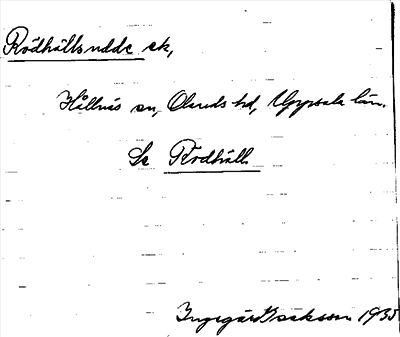 Rödhällsudde sk,
Hållnäs sn, Olands hd, Uppsala län.
Se Rödhäll.
Ingegärd Isaksson 1935